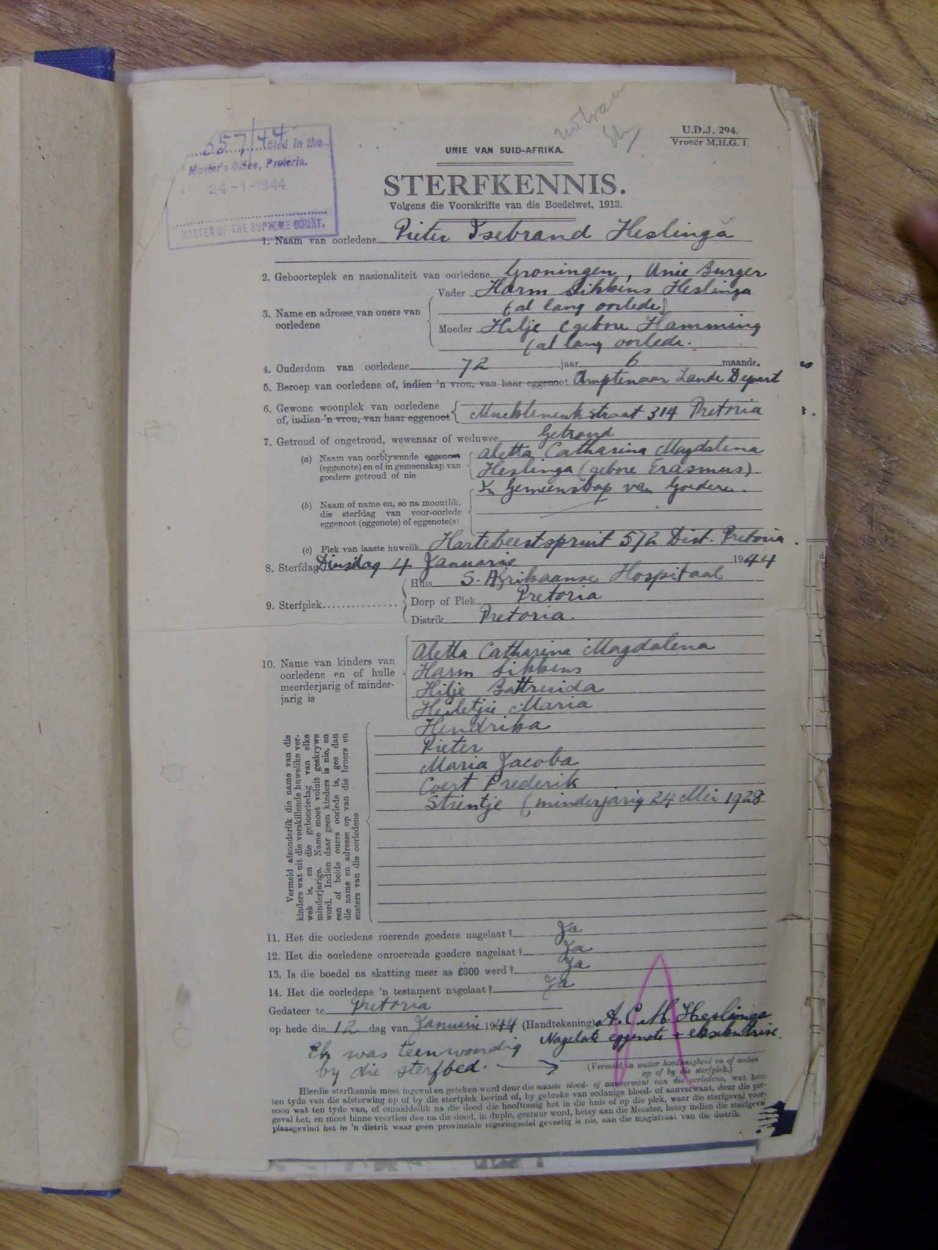 557/44 filed in the
Master's Office, Pretoria.
24-1-1944
MASTER OF THE SUPREME COURT.
U.D.J. 294.
Vroeër M.H.G. 1
UNIE VAN SUID-AFRIKA.
STERFKENNIS.
Volgens die Voorskrifte van die Boedelwet, 1913.
1. Naam van oorledene Pieter Isebrand Heslinga
2. Geboorteplek en nasionaliteit van oorledene Groningen, Unie Burger
3. Name en adresse van ouers van oorledene
Vader Harm Sikkens Heslinga
(al lang oorlede)
Moeder Hilje (gebore Hamming
(al lang oorlede.
4. Ouderdom van oorledene 72 jaar 6 maande.
5. Beroep van oorledene of, indien 'n vrou, van haar eggenoot Amptenaar Lande Depart
6. Gewone woonplek van oorledene
of, indien 'n vrou, van haar eggenoot straat 314 Pretoria
7. Getroud of ongetroud, wewenaar of weduwee Getroud
(a) Naam van oorblywende eggenoot
(eggenote) en of in gemeenskap van
goedere getroud of nie
Aletta Catharina Magdalena
Heslinga (gebore Erasmus)
In Gemeenskap van Goedere.
(b) Naam of name en, so na moontlik,
die sterfdag van voor-oorlede
eggenoot (eggenote) of eggenote(s)
(c) Plek van laaste huwelik Hartebeestspruit 512 Dist. Pretoria.
8. Sterfdag Dinsdag 4 Januarie 1944
9. Sterfplek
Huis S. Afrikaanse Hospitaal
Dorp of Plek Pretoria
Distrik Pretoria.
10. Name van kinders van
oorledene en of hulle
meerderjarig of minder-
jarig is
Vermeld afsonderlik die name van die
kinders wat uit die verskillende huwelike ver-
wek is, en die geboortedag van elke
minderjarige. Name moet voluit geskrywe
word. Indien daar geen kinders is nie, en
een of beide ouers oorlede is, gee dan
die name en adresse op van die broers en
susters van die oorledene
Aletta Catharina Magdalena
Harm Sikkens
Hilje Battruida
Hesletjie Maria
Hendrika
Pieter
Maria Jacoba
Coert Frederik
Strentje (minderjarig 24 Mei 1928
11. Het die oorledene roerende goedere nagelaat? Ja
12. Het die oorledene onroerende goedere nagelaat? Ja
13. Is die boedel na skatting meer as £300 werd? Ja
14. Het die oorledene 'n testament nagelaat? Ja
Gedateer te Pretoria
op hede die 12 dag van Januarie 1944 (Handtekening) A. C. M. Heslinga
Nagelate eggenote + eksekutrise.
Ek was teenwoordig
by die sterfbed.
(Vermeld in watter hoedanigheid en of anken
op of by die sterfplek.)
Hierdie sterfkennis moet ingevul en geteken word deur die naaste bloed- of aanverwant van die oorledene, wat hom
ten tyde van die afsterwing op of by die sterfplek bevind of, by gebreke van sodanige bloed- of aanverwant, deur die per-
soon wat ten tyde van, of onmiddelik na die dood die hooftoesig het in die huis of op die plek, waar die sterfgeval voor-
geval het, en moet binne veertien dae na die dood, in duplo, gestuur word, hetsy aan die Meester, hetsy indien die sterfgeval
plaasgevind het in 'n distrik waar geen provinsiale regeringsetel gevestig is nie, aan die magistraat van die distrik.